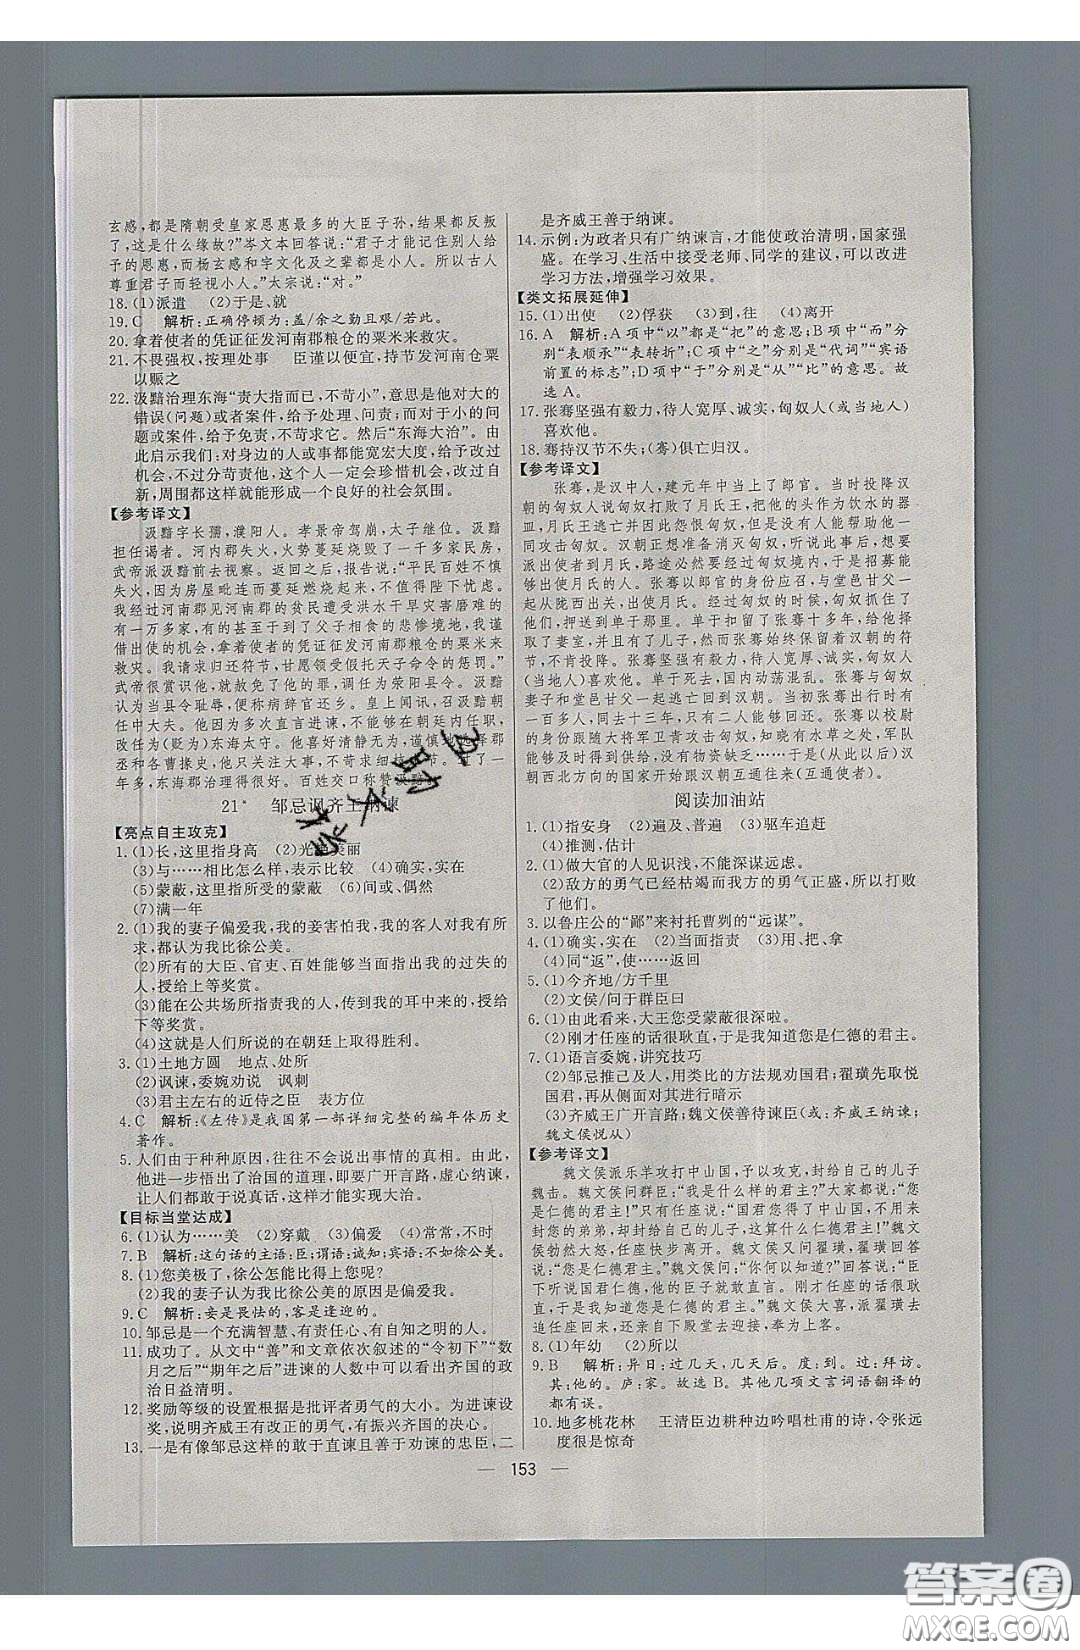 玄感，都是隋朝受皇家恩惠最多的大臣子孙，结果都反叛
了，这是什么缘故?”岑文本回答说：“君子才能记住别人给
予的恩惠，而杨玄感和宇文化及之辈都是小人。所以古人
尊重君子而轻视小人。”太宗说：“对。”
18. (1)派遣 (2)于是、就
19. C 解析：正确停顿为：盖/余之勤且艰/若此。
20. 拿着使者的凭证征发河南郡粮仓的粟米来救灾。
21. 不畏强权，按理处事 臣谨以便宜，持节发河南仓粟
以赈之
22. 汲黯治理东海“责大指而已，不苛小”，意思是他对大的
错误(问题)或者案件，给予处理、问责；而对于小的问
题或案件，给予免责，不苛求它。然后“东海大治”。
由此启示我们：对身边的人或事都能宽宏大度，给予改过
机会，不过分苛责他，这样一定会珍惜机会，改过自
新，周围都这样就能形成一个良好的社会氛围。
【参考译文】
汲黯字长孺，濮阳人。孝景帝驾崩，太子继位。汲黯
担任谒者。河内郡失火，火势蔓延烧毁了一千多家民房，
武帝派汲黯前去视察。返回后，报告说：“平民百姓不慎
失火，因为房屋毗连而蔓延燃烧起来，不必忧虑。但是
我经过河南郡见河南郡的贫民遭受洪水干旱灾害磨难的
有一万多家，以致有的到了父子相食的悲惨境地，我谨
借出使的机会，拿着使者的凭证征发河南郡粮仓的粟米来
救灾。我请求归还符节，甘愿领受假托天子命令的惩罚。”
武帝很赏识他，就免了他的罪，调任为荥阳县令。汲黯
认为当县令耻辱，便称病辞官还乡。皇上闻讯，召汲黯朝
任中大夫。他因为多次直言进谏，不能在朝廷内任职，
改任为(贬为)东海太守。他喜好清静无为，谨慎地选择郡
丞和各曹掾史。他只关注大事，不苛求细枝末节。一
年多，东海郡治理得很好。百姓交口称赞汲黯。
21* 邹忌讽齐王纳谏
【亮点自主攻克】
1. (1)长，这里指身高 (2)光艳美丽
(3)与……相比怎么样，表示比较 (4)确实，实在
(5)蒙蔽，这里指所受的蒙蔽 (6)间或、偶然
(7)满一年
2. (1)我的妻子偏爱我，我的妾害怕我，我的客人对我有所
求，都认为我比徐公美。
(2)所有的大臣、官吏、百姓能够当面指出我的过失的
人，授给上等奖赏。
(3)能在公共场所指责我的人，传到我的耳中来的，授给
下等奖赏。
(4)这就是人们所说的在朝廷上取得胜利。
3. (1)土地方圆 地点、处所
(2)讽谏，委婉劝说 讽刺
(3)君主左右的近侍之臣 表方位
4. C 解析：《左传》是我国第一部详细完整的编年体历史
著作。
5. 人们由于种种原因，往往不会说出事情的真相。因此，他
进一步悟出了治国的道理，即要广开言路，虚心纳谏，
让人们都敢于说真话，这样才能实现大治。
【目标当堂达成】
6. (1)认为……美 (2)穿戴 (3)偏爱 (4)常常，不时
7. B 解析：这句话的主语：臣；谓语：诚知；宾语：不如徐公美。
8. (1)您美极了，徐公怎能比得上您呢?
(2)我的妻子认为我比徐公美的原因是偏爱我。
9. C 解析：妾是畏怯的，客是逢迎的。
10. 邹忌是一个充满智慧、有责任心、有自知之明的人。
11. 成功了。从文中“善”和文章依次叙述的“令初下”“数
月之后”“期年之后”进谏的人数中可以看出齐国的政
治日益清明。
12. 奖励等级的设置根据是批评者勇气的大小。为进谏
设奖，说明齐威王有改正的勇气，有振兴齐国的决心。
13. 一是有像邹忌这样的敢于直谏且善于劝谏的忠臣，二
是齐威王善于纳谏。
14. 示例：为政者只有广纳谏言，才能使政治清明，国家强
盛。在学习、生活中接受老师、同学的建议，可以改进
学习方法，增强学习效果。
【类文拓展延伸】
15. (1)出使 (2)俘获 (3)到，往 (4)离开
16. A 解析：A项中“以”都是“把”的意思；B项中“而”分
别“表顺承”“表转折”；C项中“之”分别是“代词”“宾语
前置的标志”；D项中“于”分别是“从”“比”的意思。故
选A。
17. 张骞坚强有毅力，待人宽厚、诚实，匈奴人(或当地人)
喜欢他。
18. 骞持汉节不失；(骞)俱亡归汉。
【参考译文】
张骞，是汉中人，建元年中当上了郎官。当时投降汉
朝的匈奴人说匈奴打败了月氏王，把他的头作为饮水的器
皿，月氏王逃亡并因此怨恨匈奴，但没有人能够与他们一
同攻击匈奴。汉朝正想准备消灭匈奴，听说此事后，于是
派出使者到月氏，路途必然要经过匈奴境内，于是招募能
够出使月氏的人。张骞以郎官的身份应召，与堂邑甘父一
起从陇西出关，出使月氏。经过匈奴的时候，匈奴抓获了
他们，押送到单于那里。匈奴扣留了张骞十多年，给他
娶了妻室，并有了儿子，然而张骞始终保留着汉朝的符
节，不肯投降。张骞坚强有毅力，待人宽厚、诚实，匈奴人
(当地人)喜欢他。单于死去，国内动荡混乱。张骞与匈奴
妻子和堂邑甘父一起逃亡回到汉朝。当初张骞出行时有
一百多人，离去十三年，只有二人能够回还。张骞以校尉
的身份跟随大将军卫青攻击匈奴，知道有水草之处，军队
能够及时得到补给，所以没有物资缺乏……于是(从此以后)汉
朝西北方向的国家开始跟汉朝往来(互通使者)。
阅读加油站
1. (1)指安身 (2)遍及、普遍 (3)驱车追赶
(4)推测，估计
2. (1)做大官的人见识浅，不能深谋远虑。
(2)敌方的勇气已经枯竭而我方的勇气正盛，所以打败
了他们。
3. 以鲁庄公的“鄙”来衬托曹刿的“远谋”。
4. (1)确实，实在 (2)当面指责 (3)用、把、拿
(4)同“返”，使……返回
5. (1)今齐地/方千里
(2)文侯/问于群臣曰
6. (1)由此看来，大王您受蒙蔽很深啦。
(2)刚才任座的话很耿直，于是我知道您是仁德的君主。
7. (1)语言委婉，讲究技巧
(2)邹忌推己及人，用类比的方法规劝国君；翟璜先取悦
国君，再从侧面对其进行暗示
(3)齐威王广开言路；魏文侯善待谏臣(或：齐威王纳谏；
魏文侯悦从)
【参考译文】
魏文侯派乐羊攻打中山国，予以攻克，封给自己的儿子
魏击。魏文侯问群臣：“我是什么样的君主?”大家都说：“您
是仁德的君主!”只有任座说：“国君您得了中山国，不用来
封您的弟弟，却封给自己的儿子，这算什么仁德君主!”魏文
侯勃然大怒，任座快步离开。魏文侯又问翟璜，翟璜回答
说：“您是仁德君主。”魏文侯问：“你何以知道?”回答说：“臣
下听说国君仁德，他的臣子就敢直言。刚才任座的话很耿
直，于是我知道您是仁德君主。”魏文侯大喜，派翟璜去
追任座回来，还亲自下殿堂去迎接，奉为上客。
8. (1)年幼 (2)所以
9. B 解析：异日：过几天，几天后。度：到。过：拜访。
其：他的。庐：家。故选B。其他几项文言词语翻译的
都有误。
10. 地多桃花林 王清臣边耕种边吟唱杜甫的诗，令张远
度很是惊奇
— 153 —
答案圈
MXQE.COM